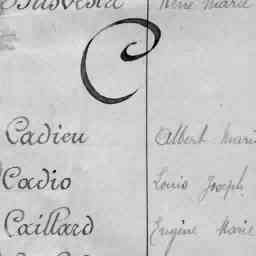 René Marie
C
Cadieu Albert Marie
Cadio Louis Joseph
Caillard Eugène Marie